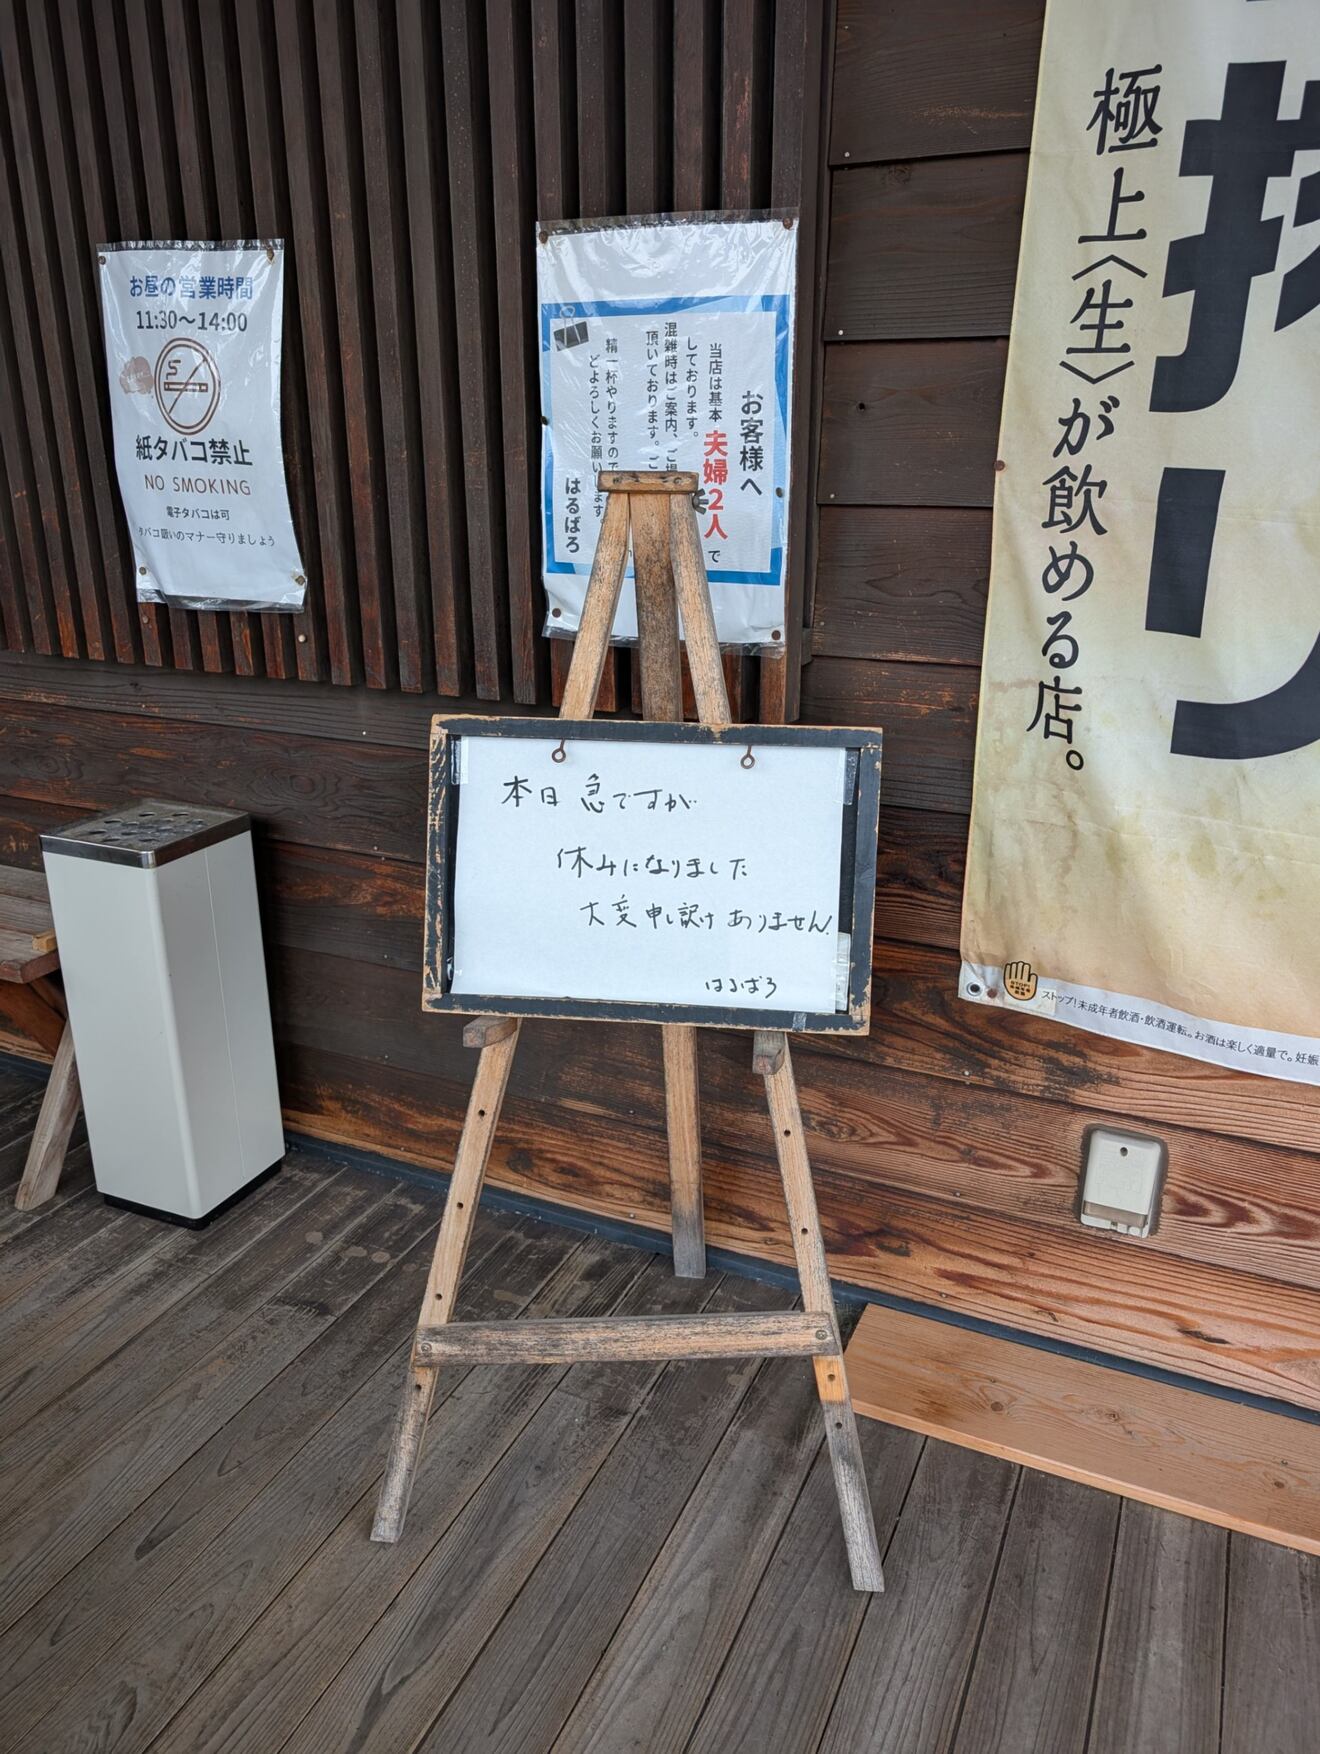 お昼の営業時間
11:30～14:00
紙タバコ禁止
NO SMOKING
電子タバコは可
タバコ吸いのマナー守りましょう
お客様へ
当店は基本 夫婦2人 で
しております。
混雑時はご案内、ご
頂いております。ご
精一杯やりますので
どよろしくお願い ます。
はるばろ
本日 急ですが
休みになりました
大変申し訳けありません。
はるばろ
極上〈生〉が飲める店。
搾り
STOP!
ストップ!未成年者飲酒・飲酒運転。お酒は楽しく適量で。妊娠